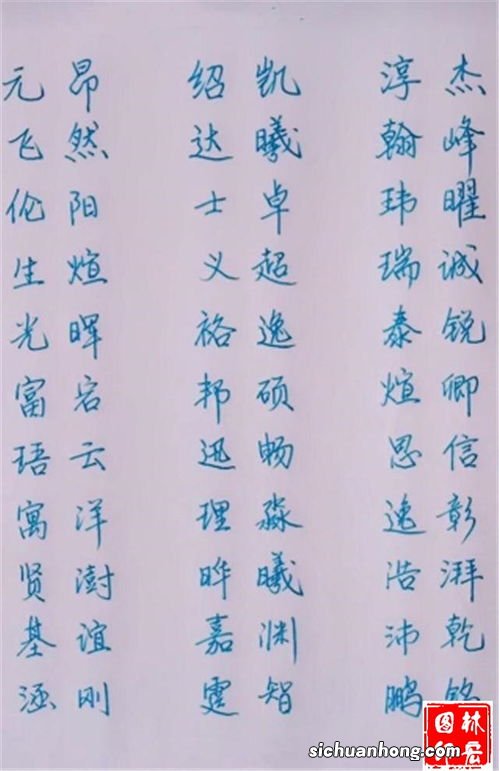 元昂 绍凯 淳杰
飞然 达曦 翰峰
伦阳 士卓 玮曜
生煊 义超 瑞诚
光晖 裕逸 泰锐
富宕 邦硕 煊卿
珸云 迅畅 思信
寓洋 理淼 逸彰
贤澍 晔曦 浩湃
基谊 嘉渊 沛乾
涵刚 霆智 鹏铭
图林
印居
sichuanhong.com